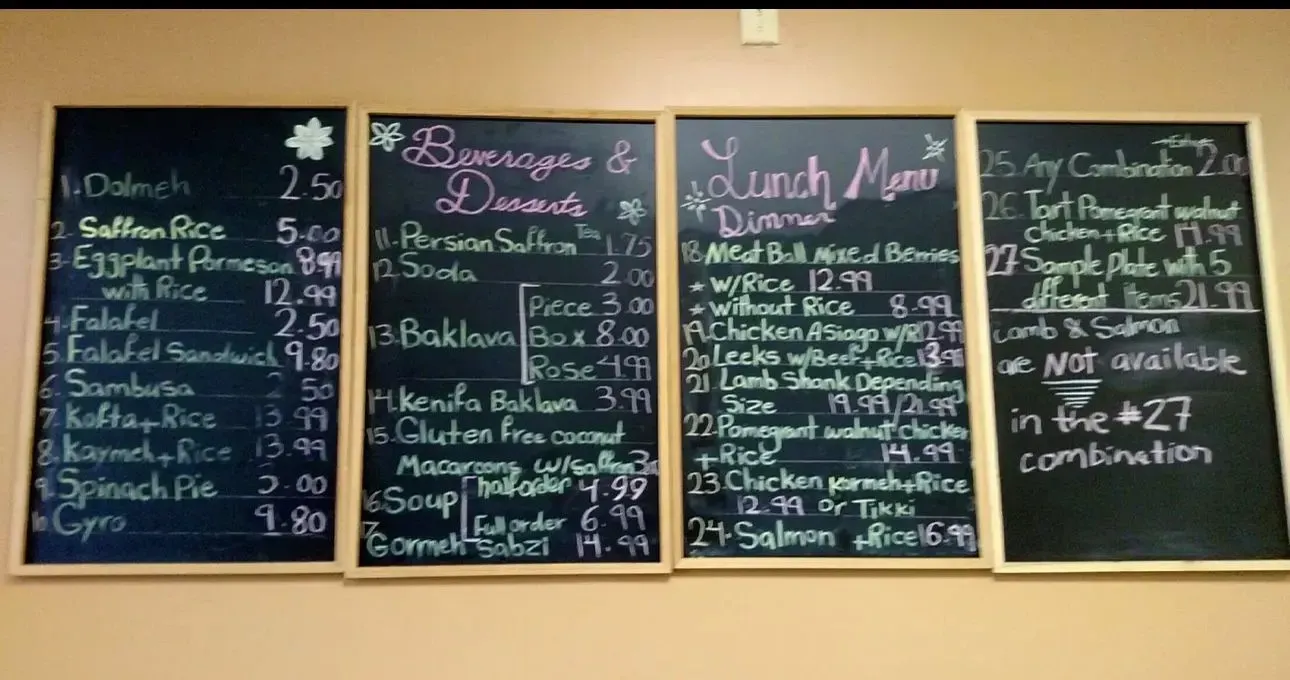 1. Dolmeh 2.50
2. Saffron Rice 5.00
3. Eggplant Parmeson 8.99
with Rice 12.99
4. Falafel 2.50
5. Falafel Sandwich 9.80
6. Sambusa 2 50
7. Kofta + Rice 13.99
8. Kaymeh + Rice 13.99
9. Spinach Pie 3.00
10. Gyro 9.80
Beverages &
Desserts
11. Persian Saffron Tea 1.75
12. Soda 2.00
Piece 3.00
13. Baklava Box 8.00
Rose 4.99
14. Kenifa Baklava 3.99
15. Gluten free coconut
Macaroons w/saffron
16. Soup half order 4.99
Full order 6.99
17 Gormeh Sabzi 14.99
Lunch Menu
Dinner
18. Meat Ball Mixed Berries
* w/Rice 12.99
* without Rice 8.99
19. Chicken Asiago w/R 12.99
20 Leeks w/Beef + Rice 13.99
21 Lamb Shank Depending
Size 19.99/21.99
22. Pomegrant walnut chicken
+ Rice 14.99
23. Chicken Kormeh + Rice
12.99 Or Tikki
24. Salmon + Rice 16.99
25. Any Combination 2.00
26. Tart Pomegrant walnut
Chicken + Rice
27 Sample Plate with 5
different Items 21.99
Lamb & Salmon
are Not available
in the #27
combination